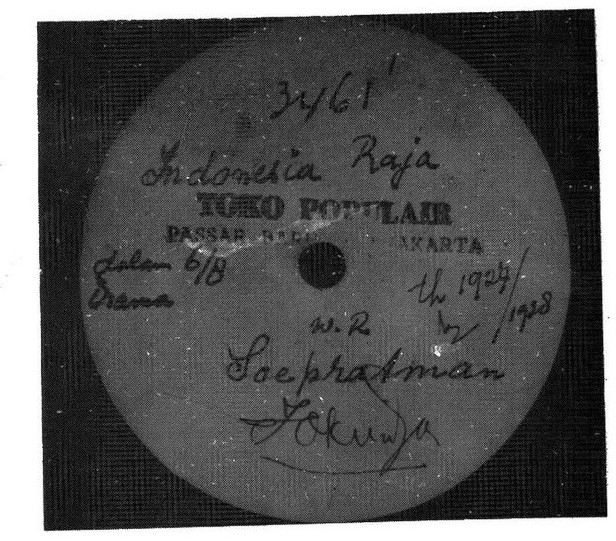 3461'
Indonesia Raja
TOKO POPULAIR
PASSAR AKARTA
dalam 6/8
th 1927/
/1928
W. R
Soepratman